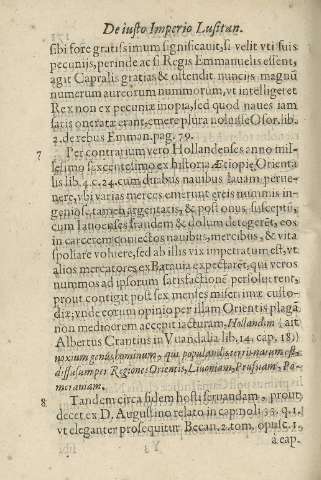 De iusto Imperio Lusitan.
sibi fore gratissimum significauit, si velit vti suis
pecunijs, perinde ac si Regis Emmanuelis essent,
agit Capralis gratias & ostendit nuncijs magnũ
numerum aureorum nummorum, vt intelligeret
Rex non ex pecuniæ inopia, sed quod naues iam
satis oneratæ erant, emere plura noluisse Osor. lib.
2. de rebus Emman. pag. 79.
7 Per contrarium vero Hollandenses anno mil-
lesimo sexcentesimo ex historia Æthiopiæ Orienta
lis lib. 4. c. 24. cum duabus nauibus Iauam perue-
nere, vbi varias merces emerunt æreis nummis in-
geniose tamen argentatis, & post onus susceptũ,
cum Iauoenses fraudem & dolum detogerẽt, eos
in carcerem coniectos nauibus, mercibus, & vita
spoliare voluere, sed ab illis vix impetratum est, vt
alios mercatores ex Batauia expectarẽt, qui veros
nummos ad ipsorum satisfactionẽ persoluerent,
prout contigit post sex menses miseri inx custo-
diæ; vnde eorum opinio per illam Orientis plagã
non mediocrem accepit iacturam, Hollandini (ait
Albertus Crantius in Vuandalia lib. 14. cap. 18.)
noxium genus hominum, qui populandis terris natum est,
diffusum per Regiones Orientis, Liuoniam, Prusiam, Po-
meraniam.
8 Tandem circa fidem hosti seruandam, prout
decet ex D. Augustino relato in cap. noli 33. q. 1.
vt eleganter prosequitur Becan. 2. tom. opusc. 1.
a cap.